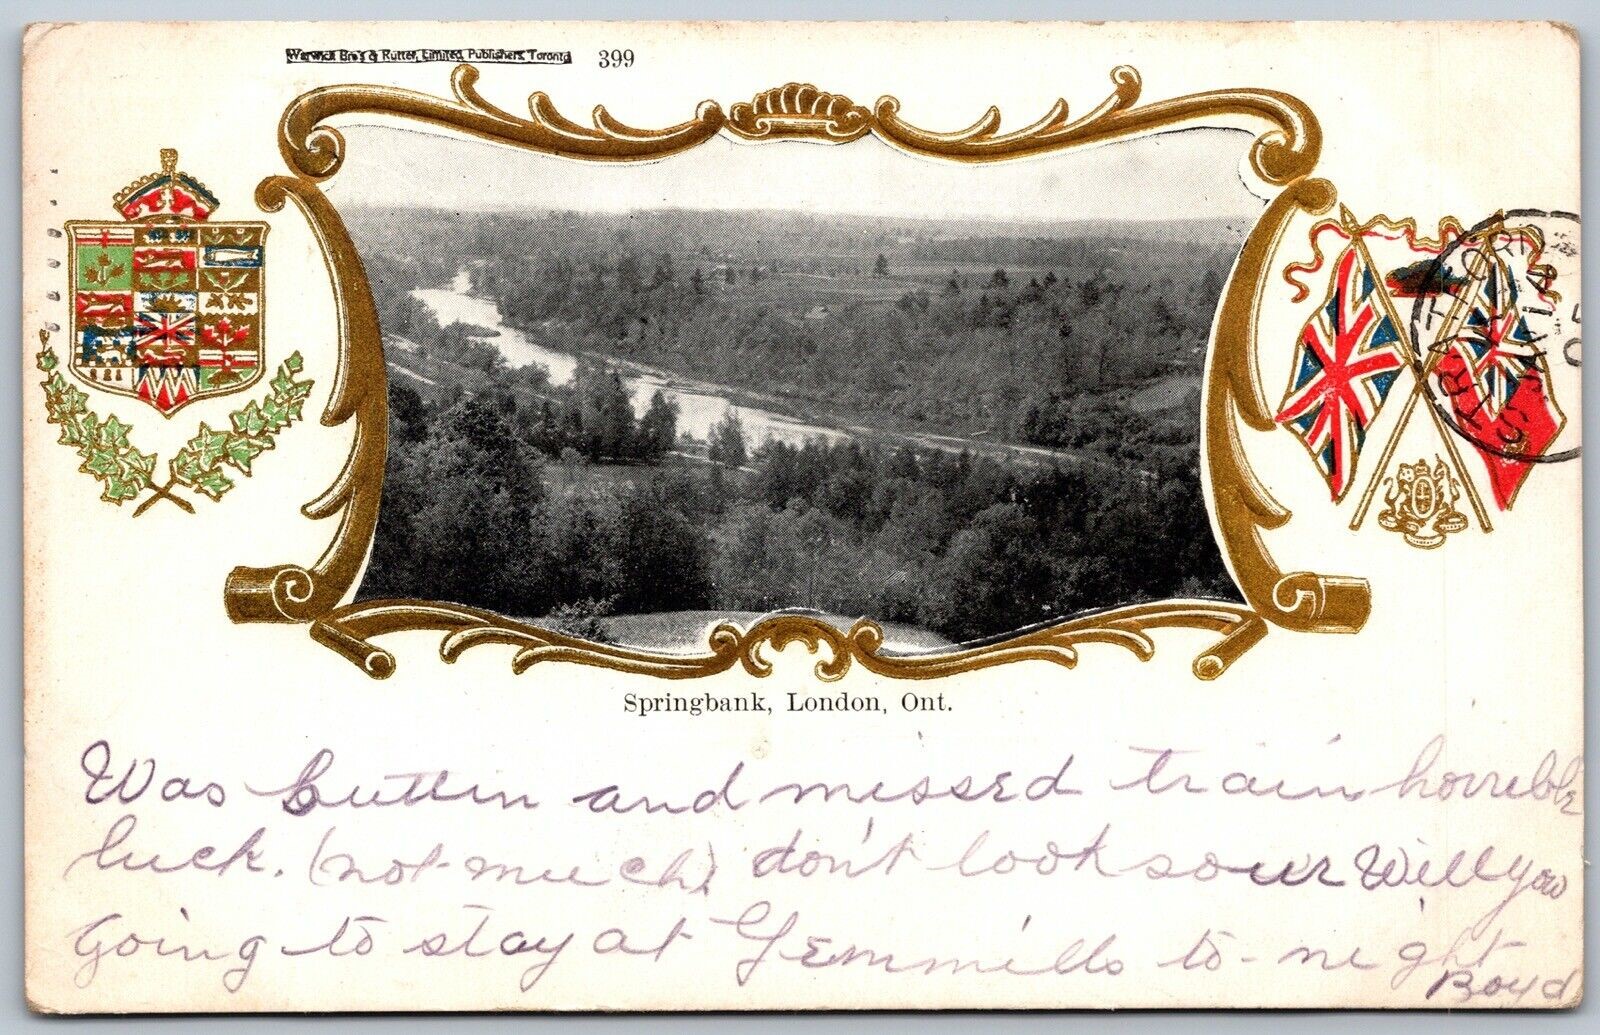 Warwick Bro's & Rutter, Limited, Publishers, Toronto 399
STRATFORD
JA 14
05
Springbank, London, Ont.
Was buttin and missed train horrible
luck. (not much) don't look sour Will you
going to stay at Gemmills to-night
Boyd